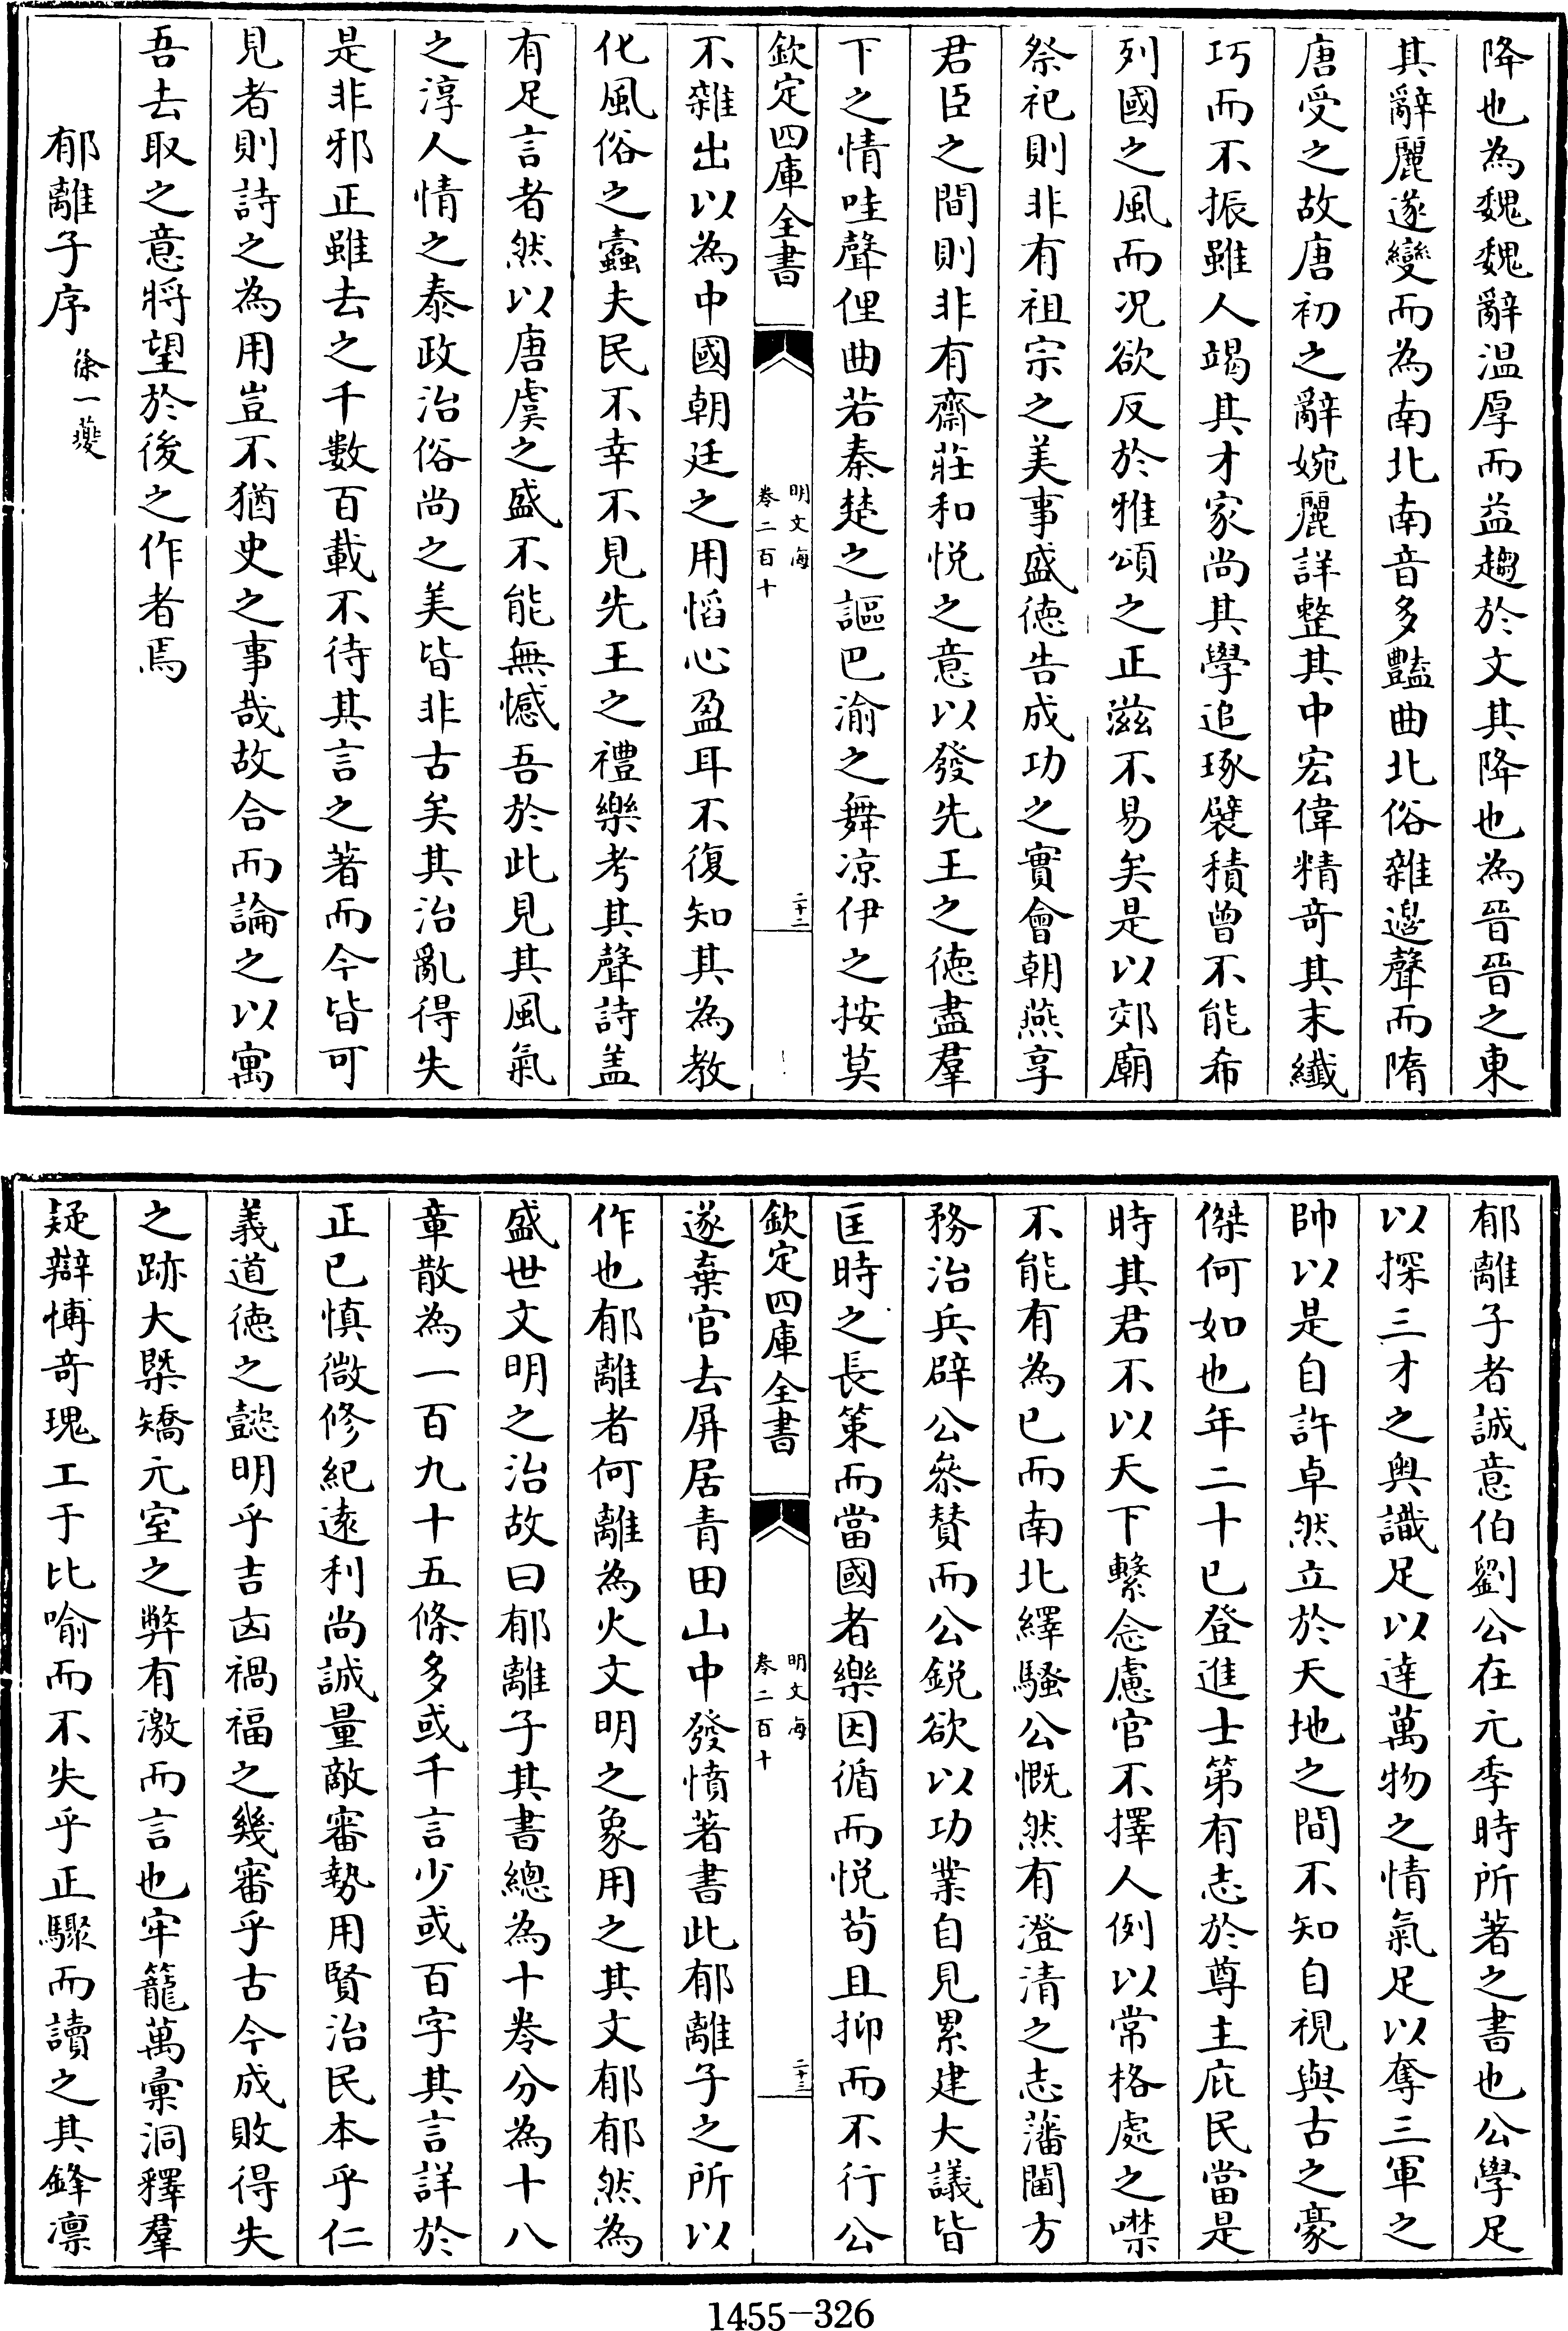 降也為魏魏辭温厚而益趨於文其降也為晉晉之東
其辭麗遂變而為南北南音多豔曲北俗雜邊聲而隋
唐受之故唐初之辭婉麗詳整其中宏偉精奇其末纖
巧而不振雖人竭其才家尚其學追琢襞積曾不能希
列國之風而况欲反於雅頌之正滋不易矣是以郊廟
祭祀則非有祖宗之美事盛德告成功之實會朝燕享
君臣之間則非有齋莊和悦之意以發先王之德盡羣
下之情哇聲俚曲若秦楚之謳巴渝之舞凉伊之按莫
欽定四庫全書
明文海
卷二百十
二十二
不雜出以為中國朝廷之用慆心盈耳不復知其為教
化風俗之蠹夫民不幸不見先王之禮樂考其聲詩盖
有足言者然以唐虞之盛不能無憾吾於此見其風氣
之淳人情之泰政治俗尚之美皆非古矣其治亂得失
是非邪正雖去之千數百載不待其言之著而今皆可
見者則詩之為用豈不猶史之事哉故合而論之以寓
吾去取之意將望於後之作者焉
郁離子序 徐一夔
郁離子者誠意伯劉公在元季時所著之書也公學足
以探三才之奥識足以達萬物之情氣足以奪三軍之
帥以是自許卓然立於天地之間不知自視與古之豪
傑何如也年二十已登進士第有志於尊主庇民當是
時其君不以天下繫念慮官不擇人例以常格處之噤
不能有為已而南北繹騷公慨然有澄清之志藩閫方
務治兵辟公參贊而公鋭欲以功業自見累建大議皆
匡時之長策而當國者樂因循而悦苟且抑而不行公
欽定四庫全書
明文海
卷二百十
二十三
遂棄官去屏居青田山中發憤著書此郁離子之所以
作也郁離者何離為火文明之象用之其文郁郁然為
盛世文明之治故曰郁離子其書總為十卷分為十八
章散為一百九十五條多或千言少或百字其言詳於
正已慎微修紀遠利尚誠量敵審勢用賢治民本乎仁
義道德之懿明乎吉凶禍福之幾審乎古今成敗得失
之跡大槩矯元室之弊有激而言也牢籠萬彙洞釋羣
疑辯博奇瑰工于比喻而不失乎正驟而讀之其鋒凛
1455-326